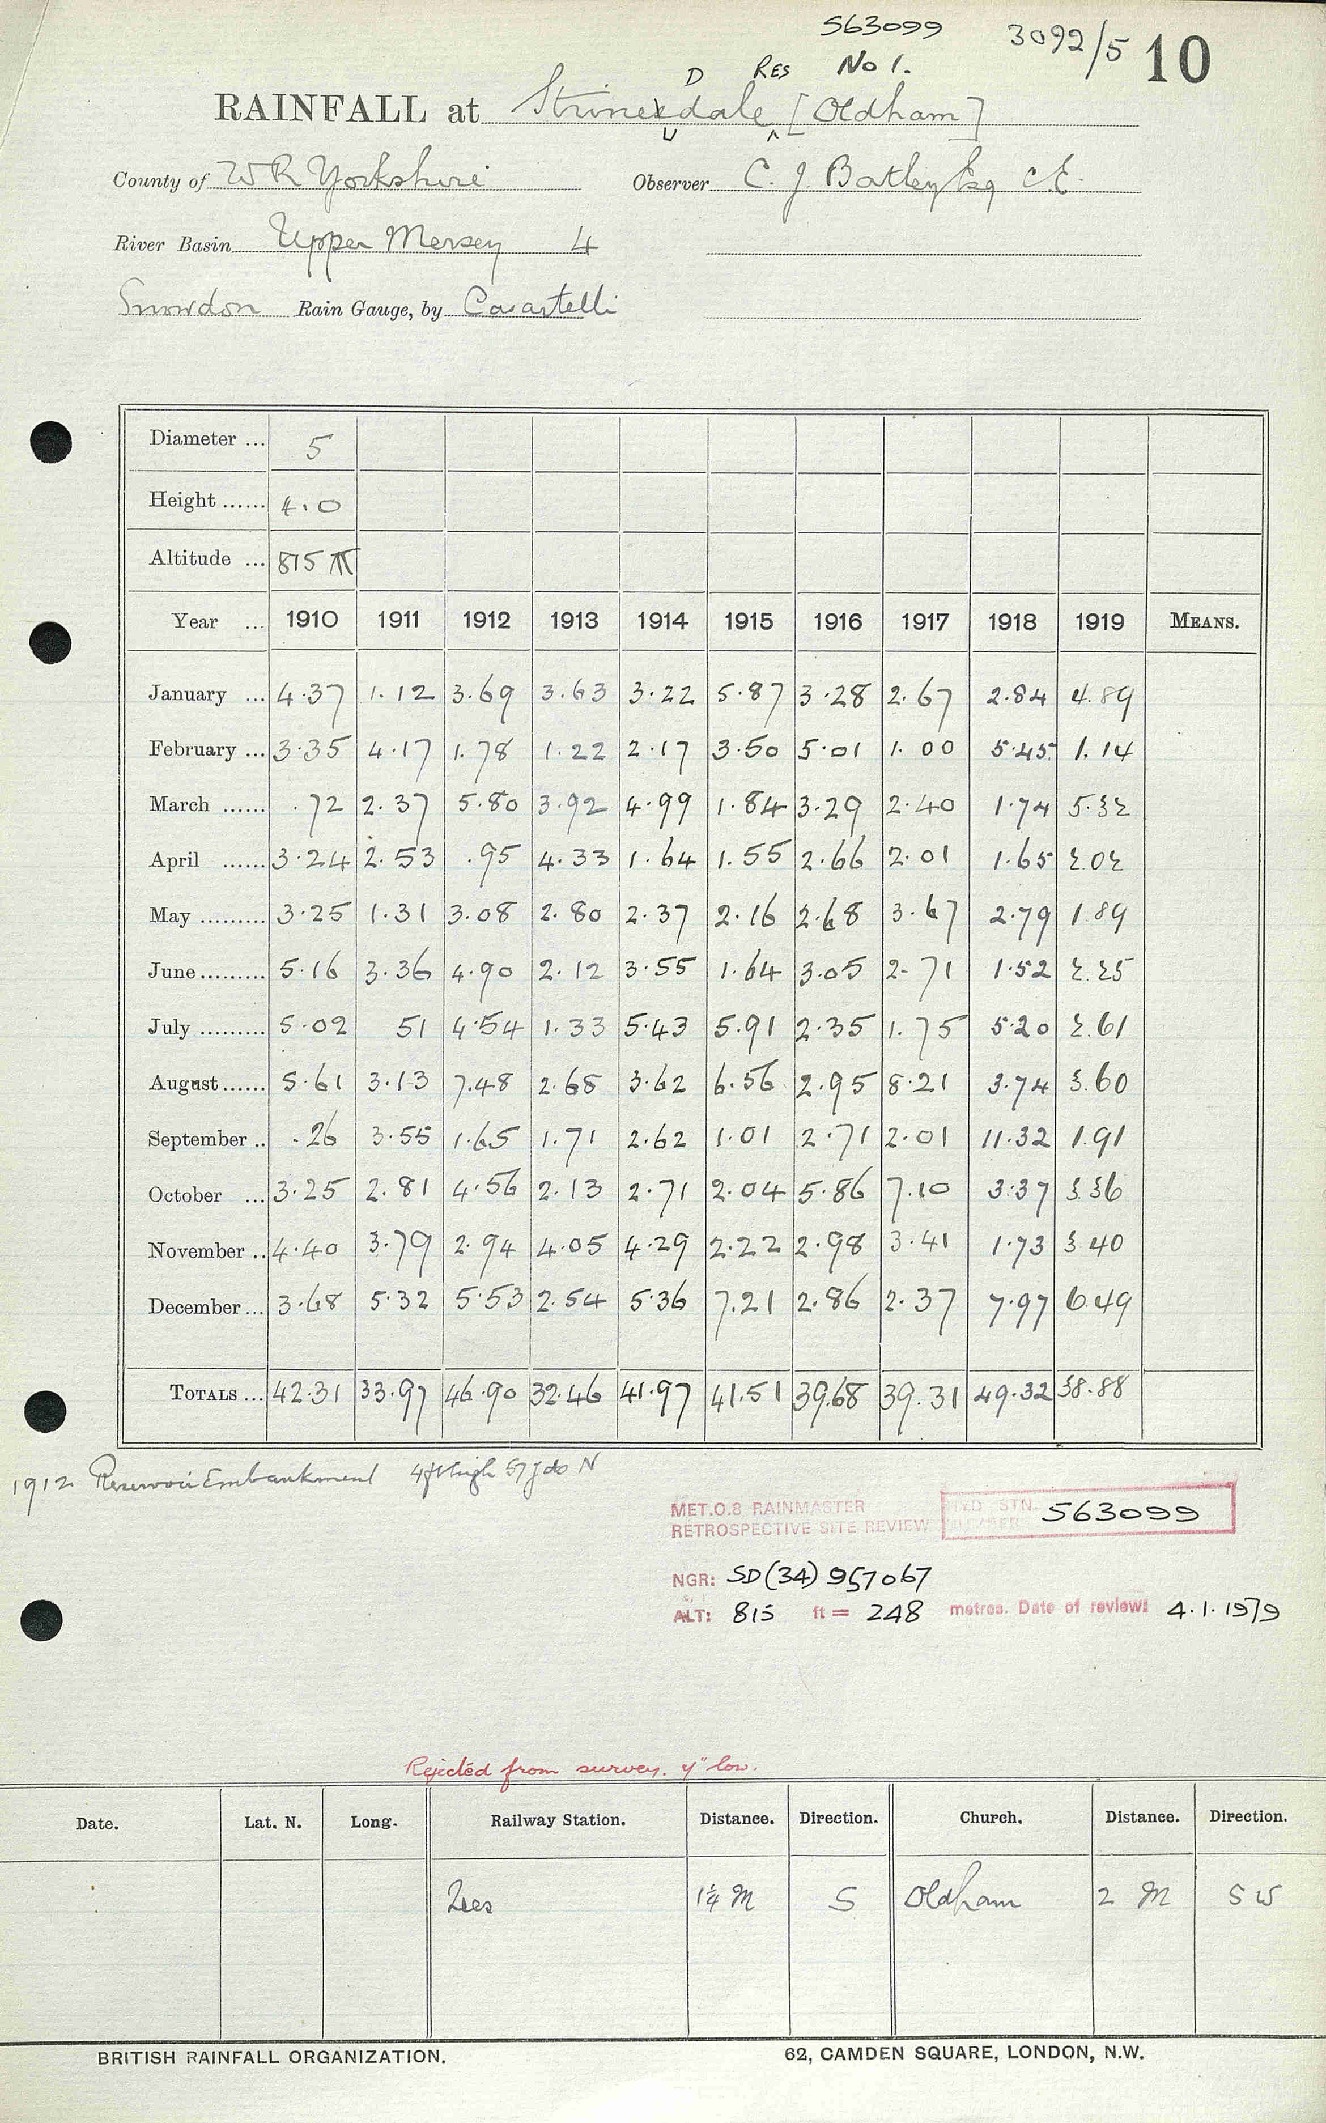 563099 3092/5 10
D Res No 1.
RAINFALL at Strinesdale [Oldham]
County of WR Yorkshire Observer C. J. Batley Esq CE.
River Basin Upper Mersey 4
Snowdon Rain Gauge, by Casartelli
Diameter ... 5
Height ...... 4.0
Altitude ... 815
Year ... 1910 1911 1912 1913 1914 1915 1916 1917 1918 1919 MEANS.
January ... 4.37 1.12 3.69 3.63 3.22 5.87 3.28 2.67 2.84 4.89
February ... 3.35 4.17 1.78 1.22 2.17 3.50 5.01 1.00 5.45 1.14
March ...... .72 2.37 5.80 3.92 4.99 1.84 3.29 2.40 1.74 5.32
April ...... 3.24 2.53 .95 4.33 1.64 1.55 2.66 2.01 1.65 2.02
May ......... 3.25 1.31 3.08 2.80 2.37 2.16 2.68 3.67 2.79 1.89
June ......... 5.16 3.36 4.90 2.12 3.55 1.64 3.05 2.71 1.52 2.25
July ......... 5.02 51 4.54 1.33 5.43 5.91 2.35 1.75 5.20 2.61
August...... 5.61 3.13 7.48 2.68 3.62 6.56 2.95 8.21 3.74 3.60
September .. .26 3.55 1.65 1.71 2.62 1.01 2.71 2.01 11.32 1.91
October ... 3.25 2.81 4.56 2.13 2.71 2.04 5.86 7.10 3.37 3.36
November .. 4.40 3.79 2.94 4.05 4.29 2.22 2.98 3.41 1.73 3.40
December ... 3.68 5.32 5.53 2.54 5.36 7.21 2.86 2.37 7.97 6.49
TOTALS ... 42.31 33.97 46.90 32.46 41.97 41.51 39.68 39.31 49.32 38.88
1912 Reservoir Embankment 4ft high 57 do N
MET.O.8 RAINMASTER HYD STN. 563099
RETROSPECTIVE SITE REVIEW NUMBER
NGR: SD(34) 957067
ALT: 815 ft = 248 metres. Date of review: 4.1.1979
Rejected from survey. 4" low.
Date. Lat. N. Long. Railway Station. Distance. Direction. Church. Distance. Direction.
Lees 1¼ M S Oldham 2 M SW
BRITISH RAINFALL ORGANIZATION. 62, CAMDEN SQUARE, LONDON, N.W.